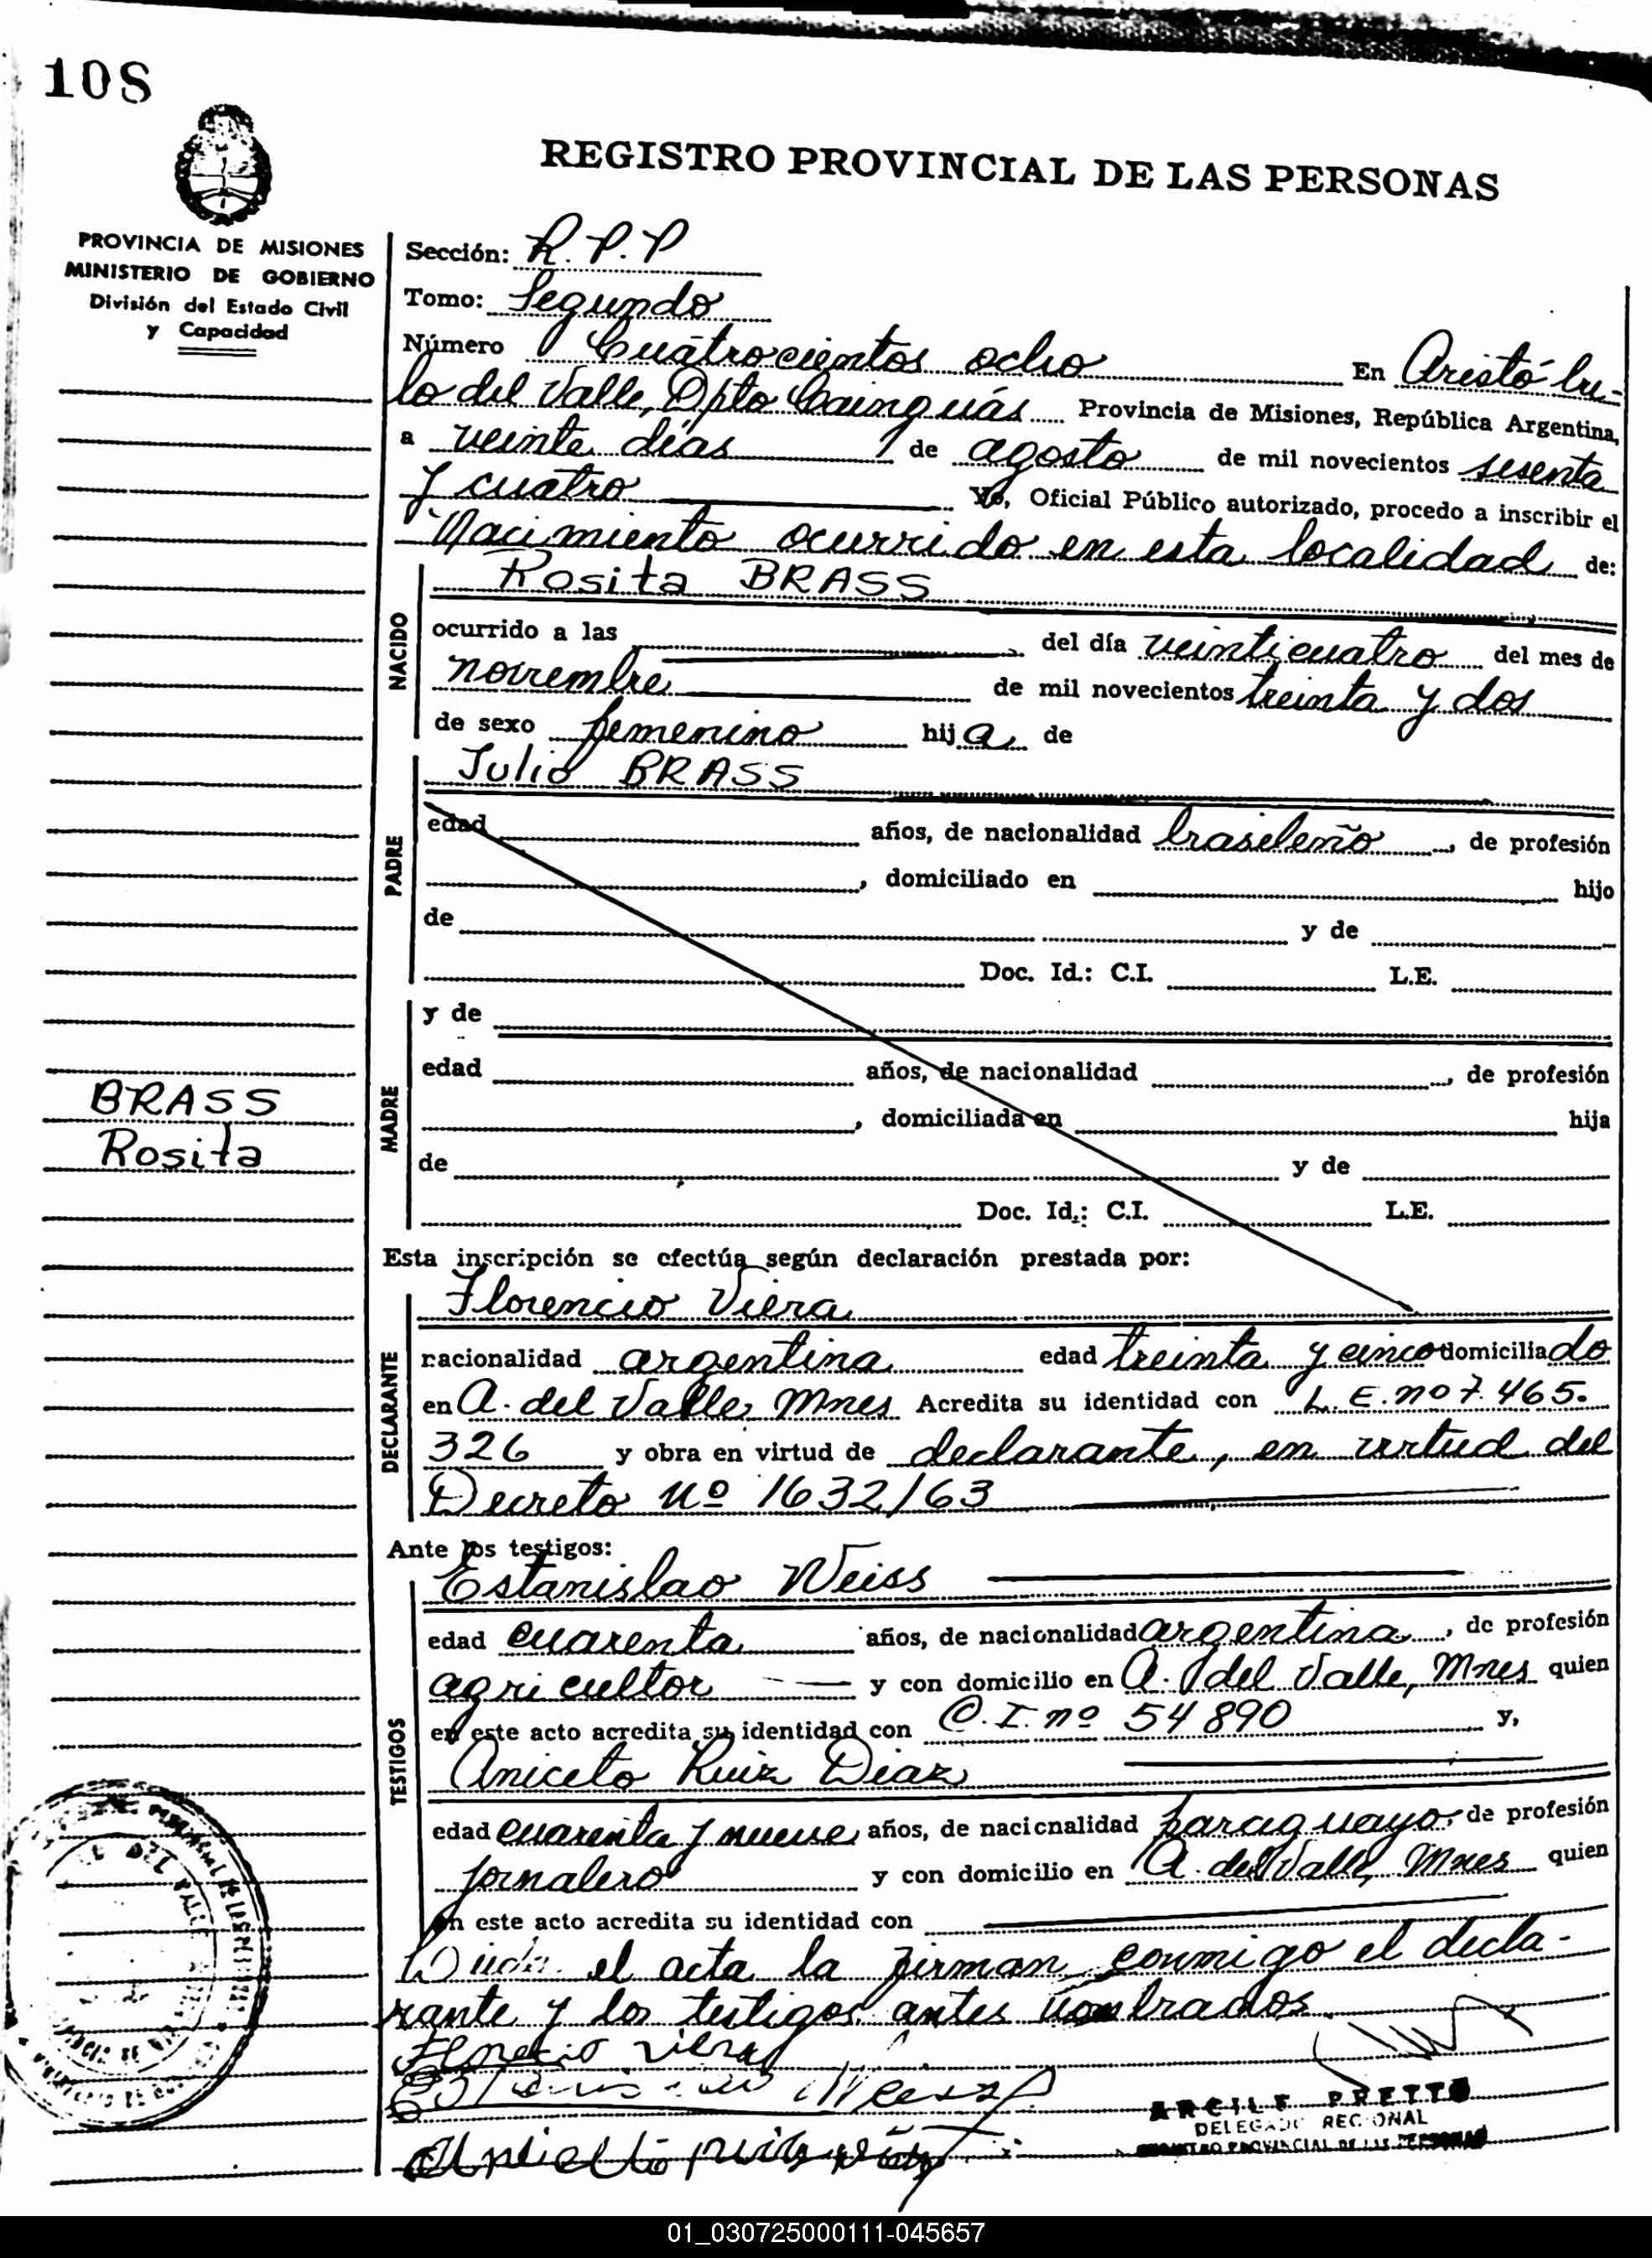 108
REGISTRO PROVINCIAL DE LAS PERSONAS
PROVINCIA DE MISIONES
MINISTERIO DE GOBIERNO
División del Estado Civil
y Capacidad
Sección: R.P.P
Tomo: Segundo
Número Cuatrocientos ocho En Aristóbu-
lo del Valle, Dpto Cainguás Provincia de Misiones, República Argentina,
a veinte días de agosto de mil novecientos sesenta
y cuatro Yo, Oficial Público autorizado, procedo a inscribir el
Nacimiento ocurrido en esta localidad de:
NACIDO
Rosita BRASS
ocurrido a las del día veinticuatro del mes de
noviembre de mil novecientos treinta y dos
de sexo femenino hija de
PADRE
Julio BRASS
edad años, de nacionalidad brasileño, de profesión
, domiciliado en hijo
de y de
Doc. Id.: C.I. L.E.
MADRE
y de
edad años, de nacionalidad , de profesión
, domiciliada en hija
de y de
Doc. Id.: C.I. L.E.
BRASS
Rosita
Esta inscripción se efectúa según declaración prestada por:
DECLARANTE
Florencio Viera
nacionalidad argentina edad treinta y cinco domiciliado
en A. del Valle Mnes Acredita su identidad con L.E. nº 7.465.
326 y obra en virtud de declarante, en virtud del
Decreto Nº 1632/63
Ante los testigos:
TESTIGOS
Estanislao Weiss
edad cuarenta años, de nacionalidad argentina, de profesión
agricultor y con domicilio en A. del Valle, Mnes quien
en este acto acredita su identidad con C.I. nº 54890 y,
Aniceto Ruiz Diaz
edad cuarenta y nueve años, de nacionalidad paraguayo, de profesión
jornalero y con domicilio en A. del Valle, Mnes quien
en este acto acredita su identidad con
el acta la firman conmigo el decla-
rante y los testigos antes nombrados
ARCILE PRETTO
DELEGADO REGIONAL
REGISTRO PROVINCIAL DE LAS PERSONAS
01_030725000111-045657